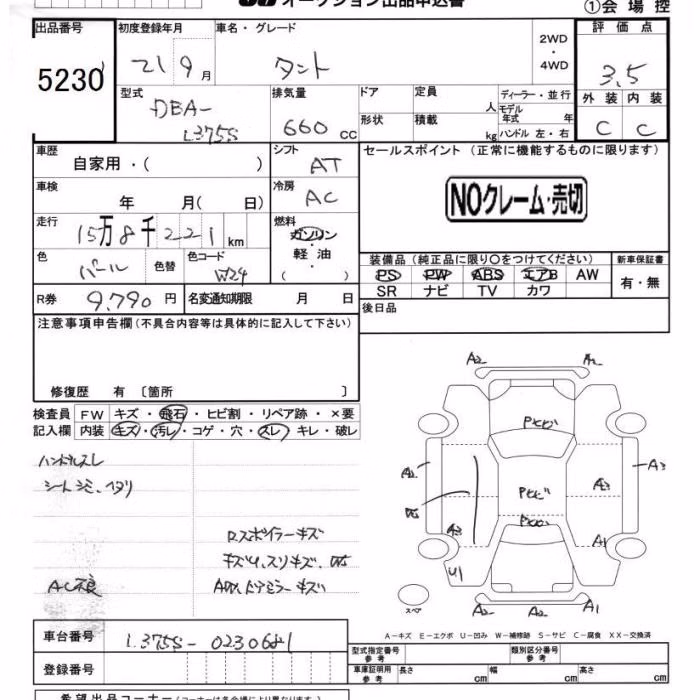 オークション出品申込書
①会場控
出品番号
5230
初度登録年月
21 9 月
車名・グレード
タント
2WD
・
4WD
評価点
3.5
型式
DBA-
L375S
排気量
660 cc
ドア
形状
定員
人
積載
kg
ディーラー・並行
モデル
年式 年
ハンドル 左・右
外装 内装
C C
車歴
自家用・( )
シフト
AT
セールスポイント (正常に機能するものに限ります)
NOクレーム・売切
車検
年 月( 日)
冷房
AC
走行
15万8千221 km
燃料
ガソリン
軽油
( )
色
パール
色替
色コード
W24
装備品 (純正品に限り○をつけてください)
PS PW ABS エアB AW
SR ナビ TV カワ
新車保証書
有・無
R券 9,790 円
名変通知期限 月 日
後日品
注意事項申告欄 (不具合内容等は具体的に記入して下さい)
修復歴 有 〔箇所 〕
検査員
記入欄
FW キズ・飛石・ヒビ割・リペア跡・×要
内装 キズ・汚レ・コゲ・穴・スレ・キレ・破レ
ハンドルスレ
シートシミ、ヘタリ
Rスポイラーキズ
AC不良
A2
A2
A3
A3
A1
U1
A2
A2
A1
スペア
A-キズ E-エクボ U-凹み W-補修跡 S-サビ C-腐食 XX-交換済
車台番号
L375S-0230681
登録番号
型式指定番号
参考
類別区分番号
参考
車庫証明用
参考
長さ cm
幅 cm
高さ cm
希望出品コーナー